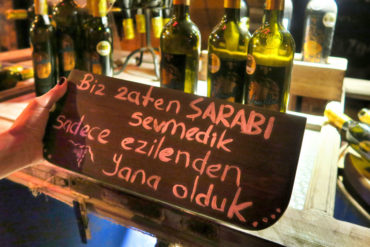 Biz zaten ŞARABI
sevmedik
sadece ezilenden
yana olduk....